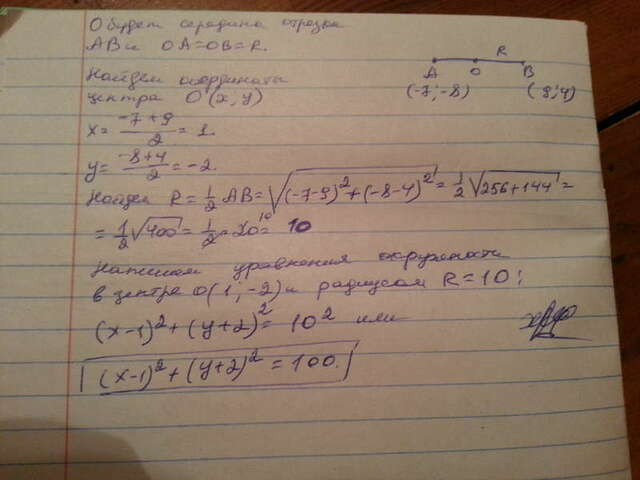 О будет середина отрезка
AB и OA=OB=R.
R
A O B
(-7; -8) (9; 4)
Найдем координаты
центра O (x; y)
x = \frac{-7+9}{2} = 1.
y = \frac{-8+4}{2} = -2.
Найдем R = \frac{1}{2} AB = \sqrt{(-7-9)^2+(-8-4)^2} = \frac{1}{2}\sqrt{256+144} =
= \frac{1}{2}\sqrt{400} = \frac{1}{2} \cdot 20 = 10
Напишем уравнения окружности
в центре O(1; -2) и радиусом R=10:
(x-1)^2+(y+2)^2 = 10^2 или
(x-1)^2+(y+2)^2 = 100.